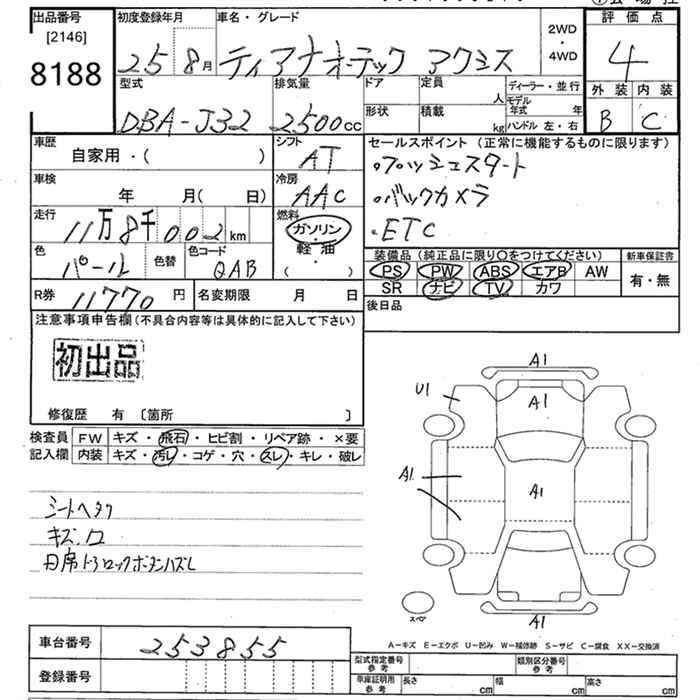 出品番号
[2146]
8188
初度登録年月
25 8月
車名・グレード
ティアナオーテック アクシス
2WD
・
4WD
評価点
4
外装 内装
B C
型式
DBA-J32
排気量
2500cc
ドア
定員
人
形状
積載
kg
ディーラー・並行
モデル年式 年
ハンドル 左・右
車歴
自家用・( )
シフト
AT
車検
年 月( 日)
冷房
AAC
走行
11万8千002km
燃料
ガソリン
軽油
( ・ )
色
パール
色替
色コード
QAB
R券 11770円
名変期限 月 日
セールスポイント(正常に機能するものに限ります)
・プッシュスタート
・バックカメラ
・ETC
装備品(純正品に限り○をつけてください)
PS PW ABS エアB AW
SR ナビ TV カワ
新車保証書
有・無
後日品
注意事項申告欄(不具合内容等は具体的に記入して下さい)
初出品
修復歴 有 〔箇所 〕
検査員記入欄
FW キズ・飛石・ヒビ割・リペア跡・×要
内装 キズ・汚レ・コゲ・穴・スレ・キレ・破レ
シートヘタリ
キズ.
ロックボタンハズレ
A1
U1
A1
A1
A1
A1
スペア
A-キズ E-エクボ U-凹み W-補修跡 S-サビ C-腐食 XX-交換済
車台番号 253855
登録番号
型式指定番号 参考
類別区分番号 参考
車庫証明用 参考
長さ cm 幅 cm 高さ cm